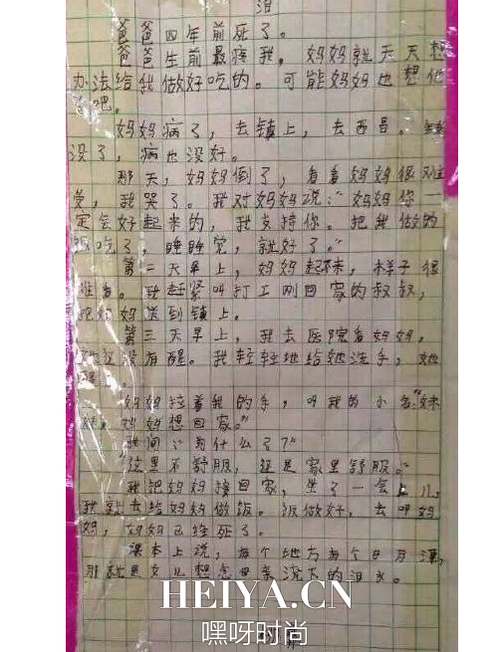 泪
爸爸四年前死了。
爸爸生前最疼我,妈妈就天天想
办法给我做好吃的。可能妈妈也想他
了吧。
妈妈病了,去镇上,去西昌。钱
没了,病也没好。
那天,妈妈倒了,看着妈妈很难
受,我哭了。我对妈妈说:“妈妈你一
定会好起来的,我支持你。把我做的
饭吃了,睡睡觉,就好了。”
第二天早上,妈妈起不来,样子很
难看。我赶紧叫打工刚回家的叔叔,
把妈妈送到镇上。
第三天早上,我去医院看妈妈,
她还没有醒。我轻轻地给她洗手,她
醒了。
妈妈拉着我的手,叫我的小名:“妹
妹,妈妈想回家。”
我问:“为什么了?”
“这里不舒服,还是家里舒服。”
我把妈妈接回家,坐了一会儿,
我就去给妈妈做饭。饭做好,去叫妈
妈,妈妈已经死了。
课本上说,有个地方有个日月潭,
那就是女儿想念母亲流下的泪水。
HEIYA.CN
嘿呀时尚